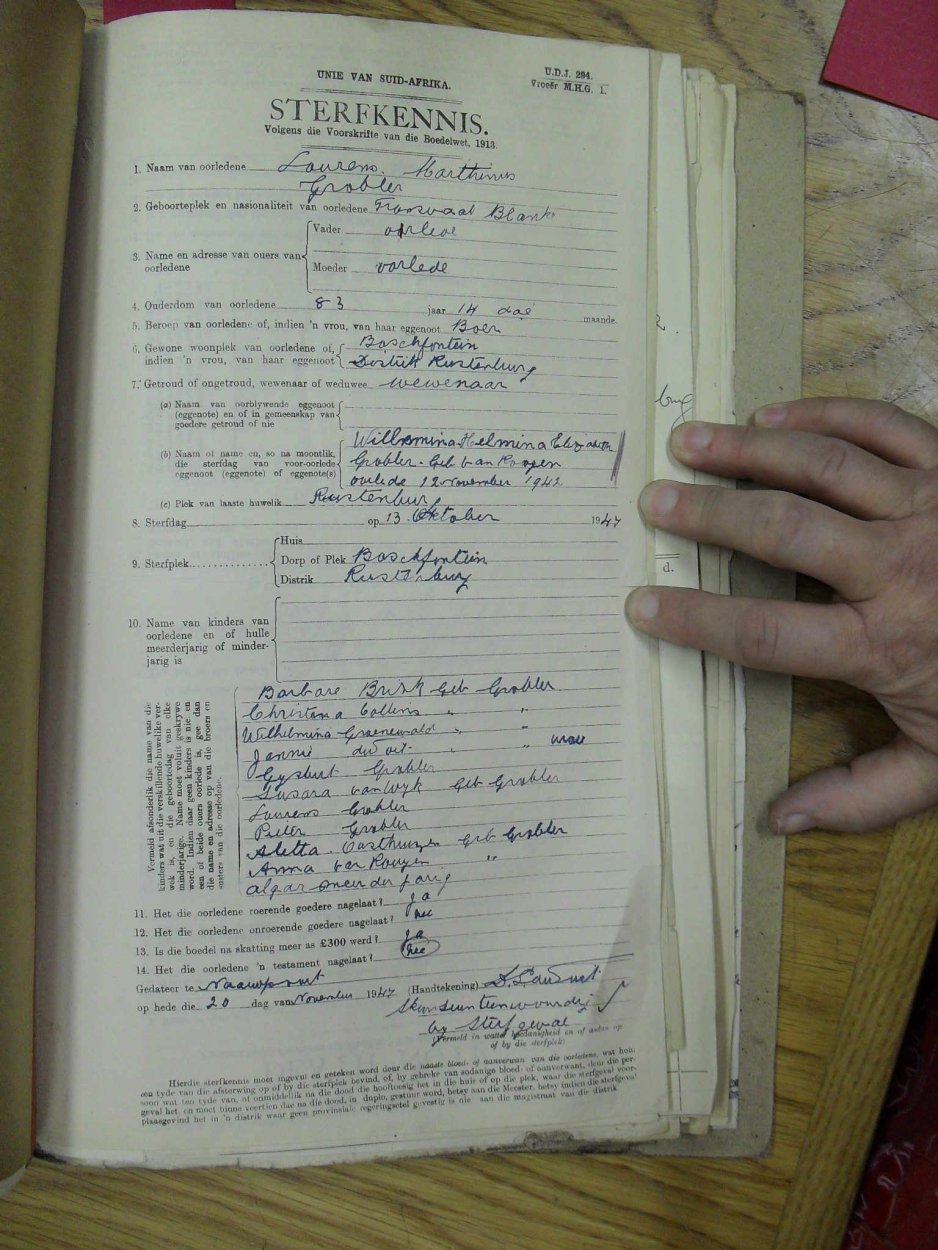 UNIE VAN SUID-AFRIKA.
U.D.J. 294.
Vroeër M.H.G. 1.
STERFKENNIS.
Volgens die Voorskrifte van die Boedelwet, 1913.
1. Naam van oorledene Lourens Marthinus
Grobler
2. Geboorteplek en nasionaliteit van oorledene Transvaal Blank
3. Name en adresse van ouers van oorledene
Vader oorlede
Moeder oorlede
4. Ouderdom van oorledene 83 jaar 14 dae maande
5. Beroep van oorledene of, indien 'n vrou, van haar eggenoot Boer
6. Gewone woonplek van oorledene of, indien 'n vrou, van haar eggenoot
Boschfontein
Distrik Rustenburg
7. Getroud of ongetroud, wewenaar of weduwee wewenaar
(a) Naam van oorblywende eggenoot
(eggenote) en of in gemeenskap van
goedere getroud of nie
(b) Naam of name en, so na moontlik,
die sterfdag van voor-oorlede
eggenoot (eggenote) of eggenote(s)
Wilhelmina Helmina Elizabeth
Grobler. Geb van Rooyen
oorlede 12 November 1942
(c) Plek van laaste huwelik Rustenburg
8. Sterfdag op 13 Oktober 1947
9. Sterfplek
Huis
Dorp of Plek Boschfontein
Distrik Rustenburg
10. Name van kinders van
oorledene en of hulle
meerderjarig of minder-
jarig is
Vermeld afsonderlik die name van die
kinders wat uit die verskillende huwelike ver-
wek is, en die geboortedag van elke
minderjarige. Name moet voluit geskrywe
word. Indien daar geen kinders is nie en
een of beide ouers oorlede is, gee dan
die name en adresse op van die broers en
susters van die oorledene.
Barbara Brink Geb Grobler
Christina Collins " "
Wilhelmina Groenewald " "
Jannie du Toit " "
Gysbert Grobler
Susara van Wyk Geb Grobler
Lourens Grobler
Pieter Grobler
Aletta Oosthuizen Geb Grobler
Anna van Rooyen "
algar meerderjarig
11. Het die oorledene roerende goedere nagelaat? Ja
12. Het die oorledene onroerende goedere nagelaat? Nee
13. Is die boedel na skatting meer as £300 werd? Ja
14. Het die oorledene 'n testament nagelaat? Nee
Gedateer te Naauwpoort (Handtekening)
op hede die 20 dag van November 1947
by Sterfgeval
(Vermeld in watter hoedanigheid en of anders op
of by die sterfplek)
Hierdie sterfkennis moet ingevul en geteken word deur die naaste bloed- of aanverwant van die oorledene, wat
ten tyde van die afsterwing op of by die sterfplek bevind, of, by gebreke van sodanige bloed- of aanverwant, deur die per-
soon wat ten tyde van, of onmiddellik na die dood die hooftoesig het in die huis of op die plek, waar die sterfgeval voor-
geval het, en moet binne veertien dae na die dood, in duplo, gestuur word, hetsy aan die Meester, hetsy indien die sterfgeval
plaasgevind het in 'n distrik waar geen provinsiale regeringsetel gevestig is nie aan die magistraat van die distrik
d.